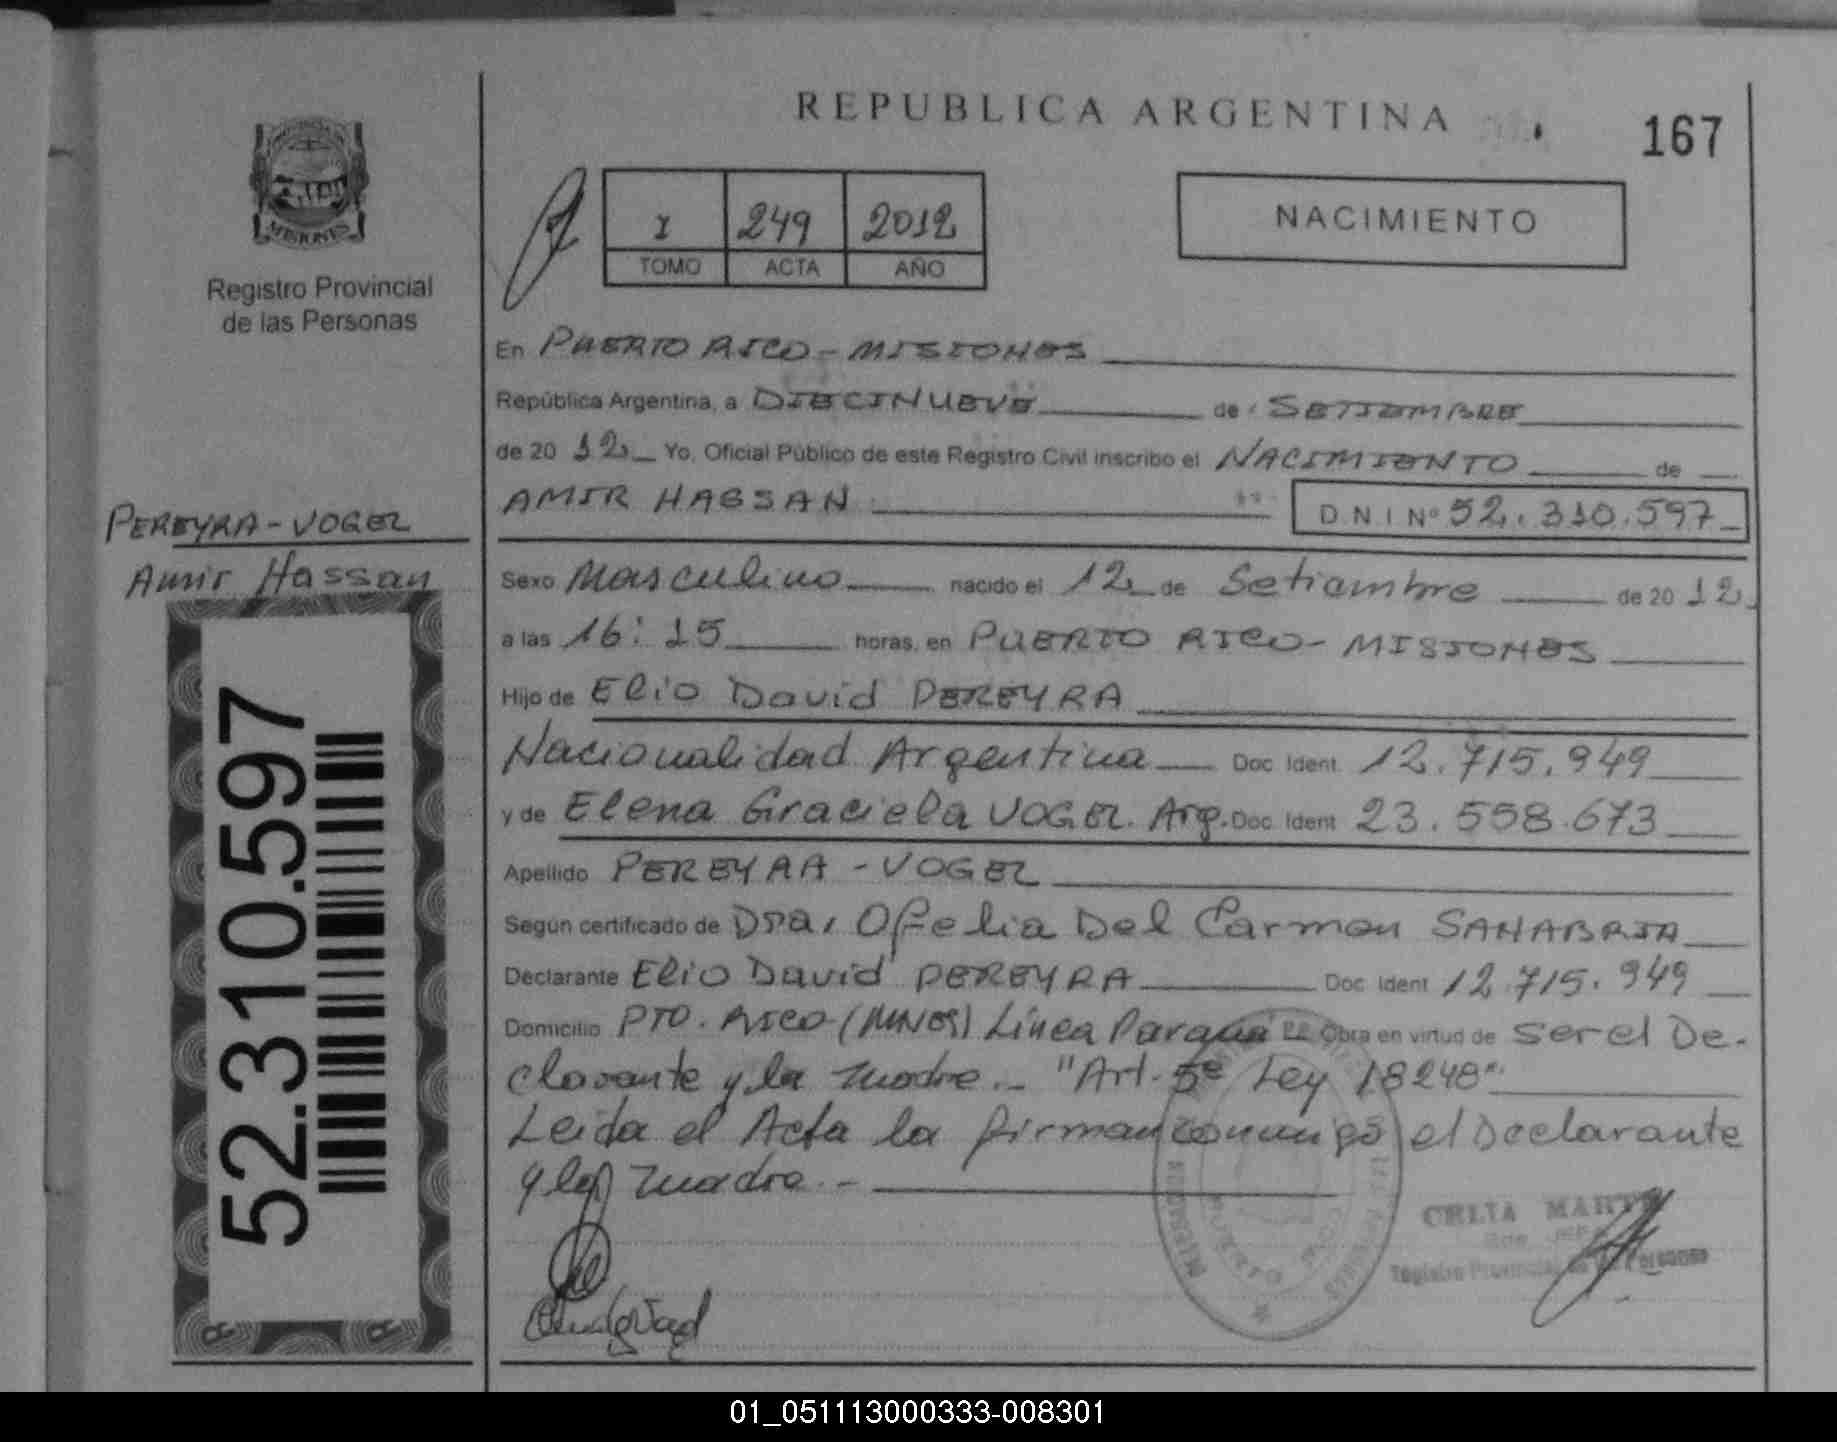 REPUBLICA ARGENTINA
167
MISIONES
Registro Provincial
de las Personas
I 249 2012
TOMO ACTA AÑO
NACIMIENTO
En PUERTO RICO - MISIONES
República Argentina, a DIECINUEVE de SETIEMBRE
de 20 12 Yo, Oficial Público de este Registro Civil inscribo el NACIMIENTO de
AMIR HASSAN
D.N.I Nº 52.310.597
PEREYRA - VOGEL
Amir Hassan
52.310.597
Sexo Masculino nacido el 12 de Setiembre de 20 12
a las 16:15 horas, en PUERTO RICO - MISIONES
Hijo de Elio David PEREYRA
Nacionalidad Argentina Doc. Ident. 12.715.949
y de Elena Graciela VOGEL. Arg. Doc. Ident 23.558.673
Apellido PEREYRA - VOGEL
Según certificado de Dra. Ofelia Del Carmen SANABRIA
Declarante Elio David PEREYRA Doc. Ident 12.715.949
Domicilio PTO. RICO (MNES) Línea Obra en virtud de Ser el De-
clarante y la madre.- "Art. 5º Ley 18248"
Leida el Acta la firman conmigo el Declarante
y la madre.-
CELIA
Registro Provincial de las Personas
01_051113000333-008301